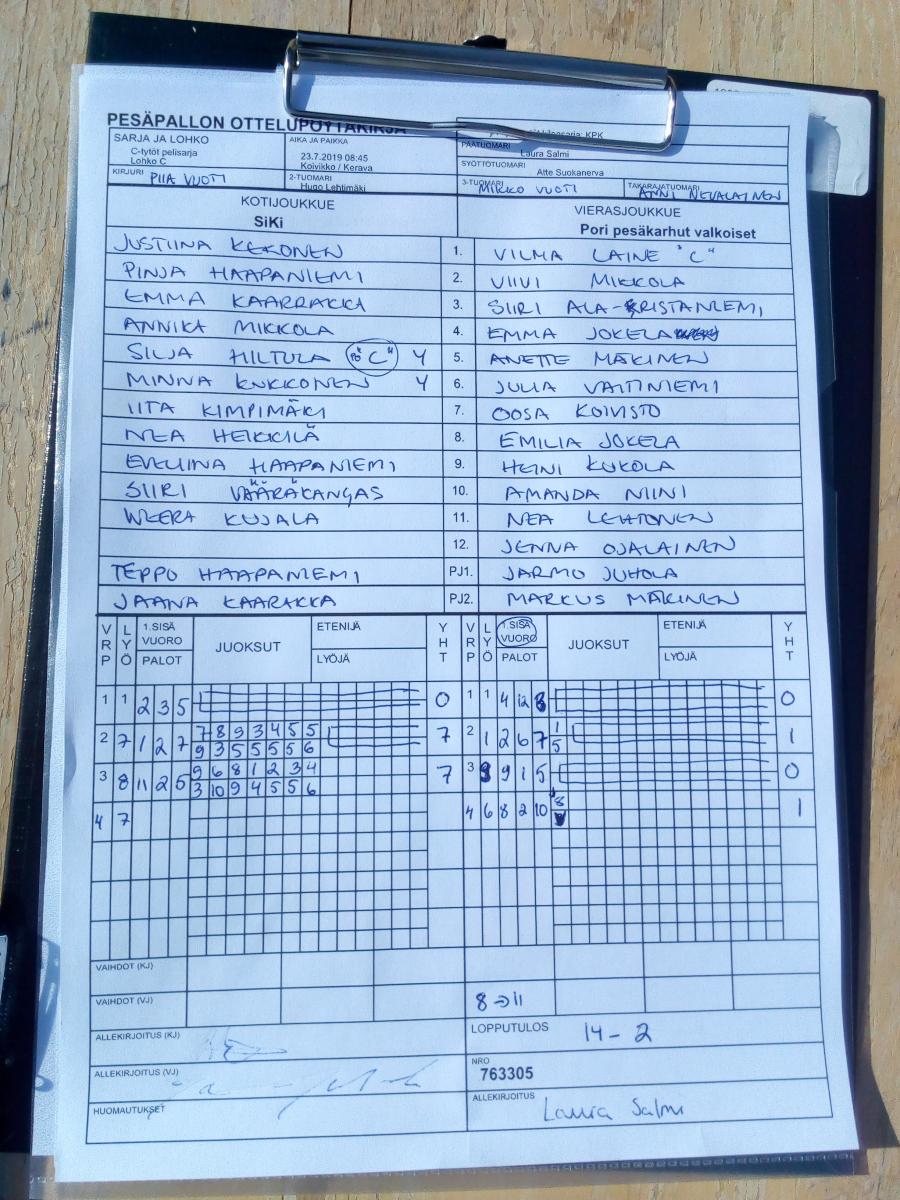 PESÄPALLON OTTELUPÖYTÄKIRJA
SARJA JA LOHKO
C-tytöt pelisarja
Lohko C
AIKA JA PAIKKA
23.7.2019 08:45
Koivikko / Kerava
KPK
PÄÄTUOMARI
Laura Salmi
SYÖTTÖTUOMARI
Atte Suokanerva
KIRJURI PIIA VUOTI
2-TUOMARI
Hugo Lehtimäki
3-TUOMARI MIKKO VUOTI
TAKARAJATUOMARI ANNI NEVALAINEN
KOTIJOUKKUE
SiKi
VIERASJOUKKUE
Pori pesäkarhut valkoiset
JUSTIINA KEKONEN 1. VILMA LAINE "C"
PINJA HAAPANIEMI 2. VIIVI MIKKOLA
EMMA KAARAKKA 3. SIIRI ALA-KRISTANIEMI
ANNIKA MIKKOLA 4. EMMA JOKELA
SILJA HILTULA "C" Y 5. ANETTE MÄKINEN
MINNA KUKKONEN Y 6. JULIA VAITINIEMI
IITA KIMPIMÄKI 7. OOSA KOIVISTO
NEA HEIKKILÄ 8. EMILIA JOKELA
EVELIINA HAAPANIEMI 9. HEINI KUKOLA
SIIRI VÄÄRÄKANGAS 10. AMANDA NIINI
WEERA KUJALA 11. NEA LEHTONEN
12. JENNA OJALAINEN
TEPPO HAAPANIEMI PJ1. JARMO JUHOLA
JAANA KAARAKKA PJ2. MARKUS MÄKINEN
VRP LYÖ 1.SISÄ VUORO PALOT JUOKSUT ETENIJÄ LYÖJÄ YHT VRP LYÖ 1.SISÄ VUORO PALOT JUOKSUT ETENIJÄ LYÖJÄ YHT
1 1 2 3 5 0 1 1 4 12 8 0
2 7 1 2 7 7 8 9 3 4 5 5 7 2 1 2 6 7 1 1
9 3 5 5 5 5 6 5
3 8 11 2 5 9 6 8 1 2 3 4 7 3 9 9 1 5 0
3 10 9 4 5 5 6
4 7 4 6 8 2 10 8 1
VAIHDOT (KJ)
VAIHDOT (VJ) 8 → 11
ALLEKIRJOITUS (KJ)
LOPPUTULOS 14 - 2
ALLEKIRJOITUS (VJ)
NRO
763305
HUOMAUTUKSET
ALLEKIRJOITUS Laura Salmi